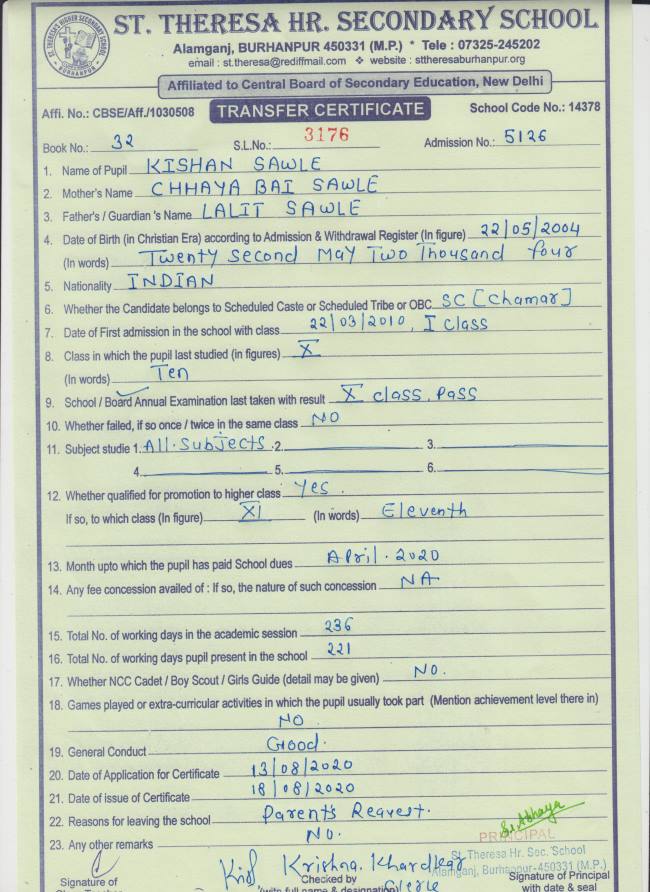 ST. THERESA HR. SECONDARY SCHOOL
Alamganj, BURHANPUR 450331 (M.P.) * Tele : 07325-245202
email : st.theresa@rediffmail.com ❖ website : sttheresaburhanpur.org
Affiliated to Central Board of Secondary Education, New Delhi
Affi. No.: CBSE/Aff./1030508 TRANSFER CERTIFICATE School Code No.: 14378
Book No.: 32 S.L.No.: 3176 Admission No.: 5126
1. Name of Pupil KISHAN SAWLE
2. Mother's Name CHHAYA BAI SAWLE
3. Father's / Guardian 's Name LALIT SAWLE
4. Date of Birth (in Christian Era) according to Admission & Withdrawal Register (In figure) 22/05/2004
(In words) Twenty Second May Two Thousand four
5. Nationality INDIAN
6. Whether the Candidate belongs to Scheduled Caste or Scheduled Tribe or OBC SC [Chamar]
7. Date of First admission in the school with class 22/03/2010, I class
8. Class in which the pupil last studied (in figures) X
(In words) Ten
9. School / Board Annual Examination last taken with result X class, Pass
10. Whether failed, if so once / twice in the same class NO
11. Subject studie 1. All Subjects 2. 3.
4. 5. 6.
12. Whether qualified for promotion to higher class Yes.
If so, to which class (In figure) XI (In words) Eleventh
13. Month upto which the pupil has paid School dues April. 2020
14. Any fee concession availed of : If so, the nature of such concession NA
15. Total No. of working days in the academic session 236
16. Total No. of working days pupil present in the school 221
17. Whether NCC Cadet / Boy Scout / Girls Guide (detail may be given) No.
18. Games played or extra-curricular activities in which the pupil usually took part (Mention achievement level there in)
NO
19. General Conduct Good.
20. Date of Application for Certificate 13/08/2020
21. Date of issue of Certificate 18/08/2020
22. Reasons for leaving the school Parents Request.
23. Any other remarks No.
PRINCIPAL
St. Theresa Hr. Sec. School
Alamganj, Burhanpur-450331 (M.P.)
Krishna
Signature of Checked by Signature of Principal
with date & seal